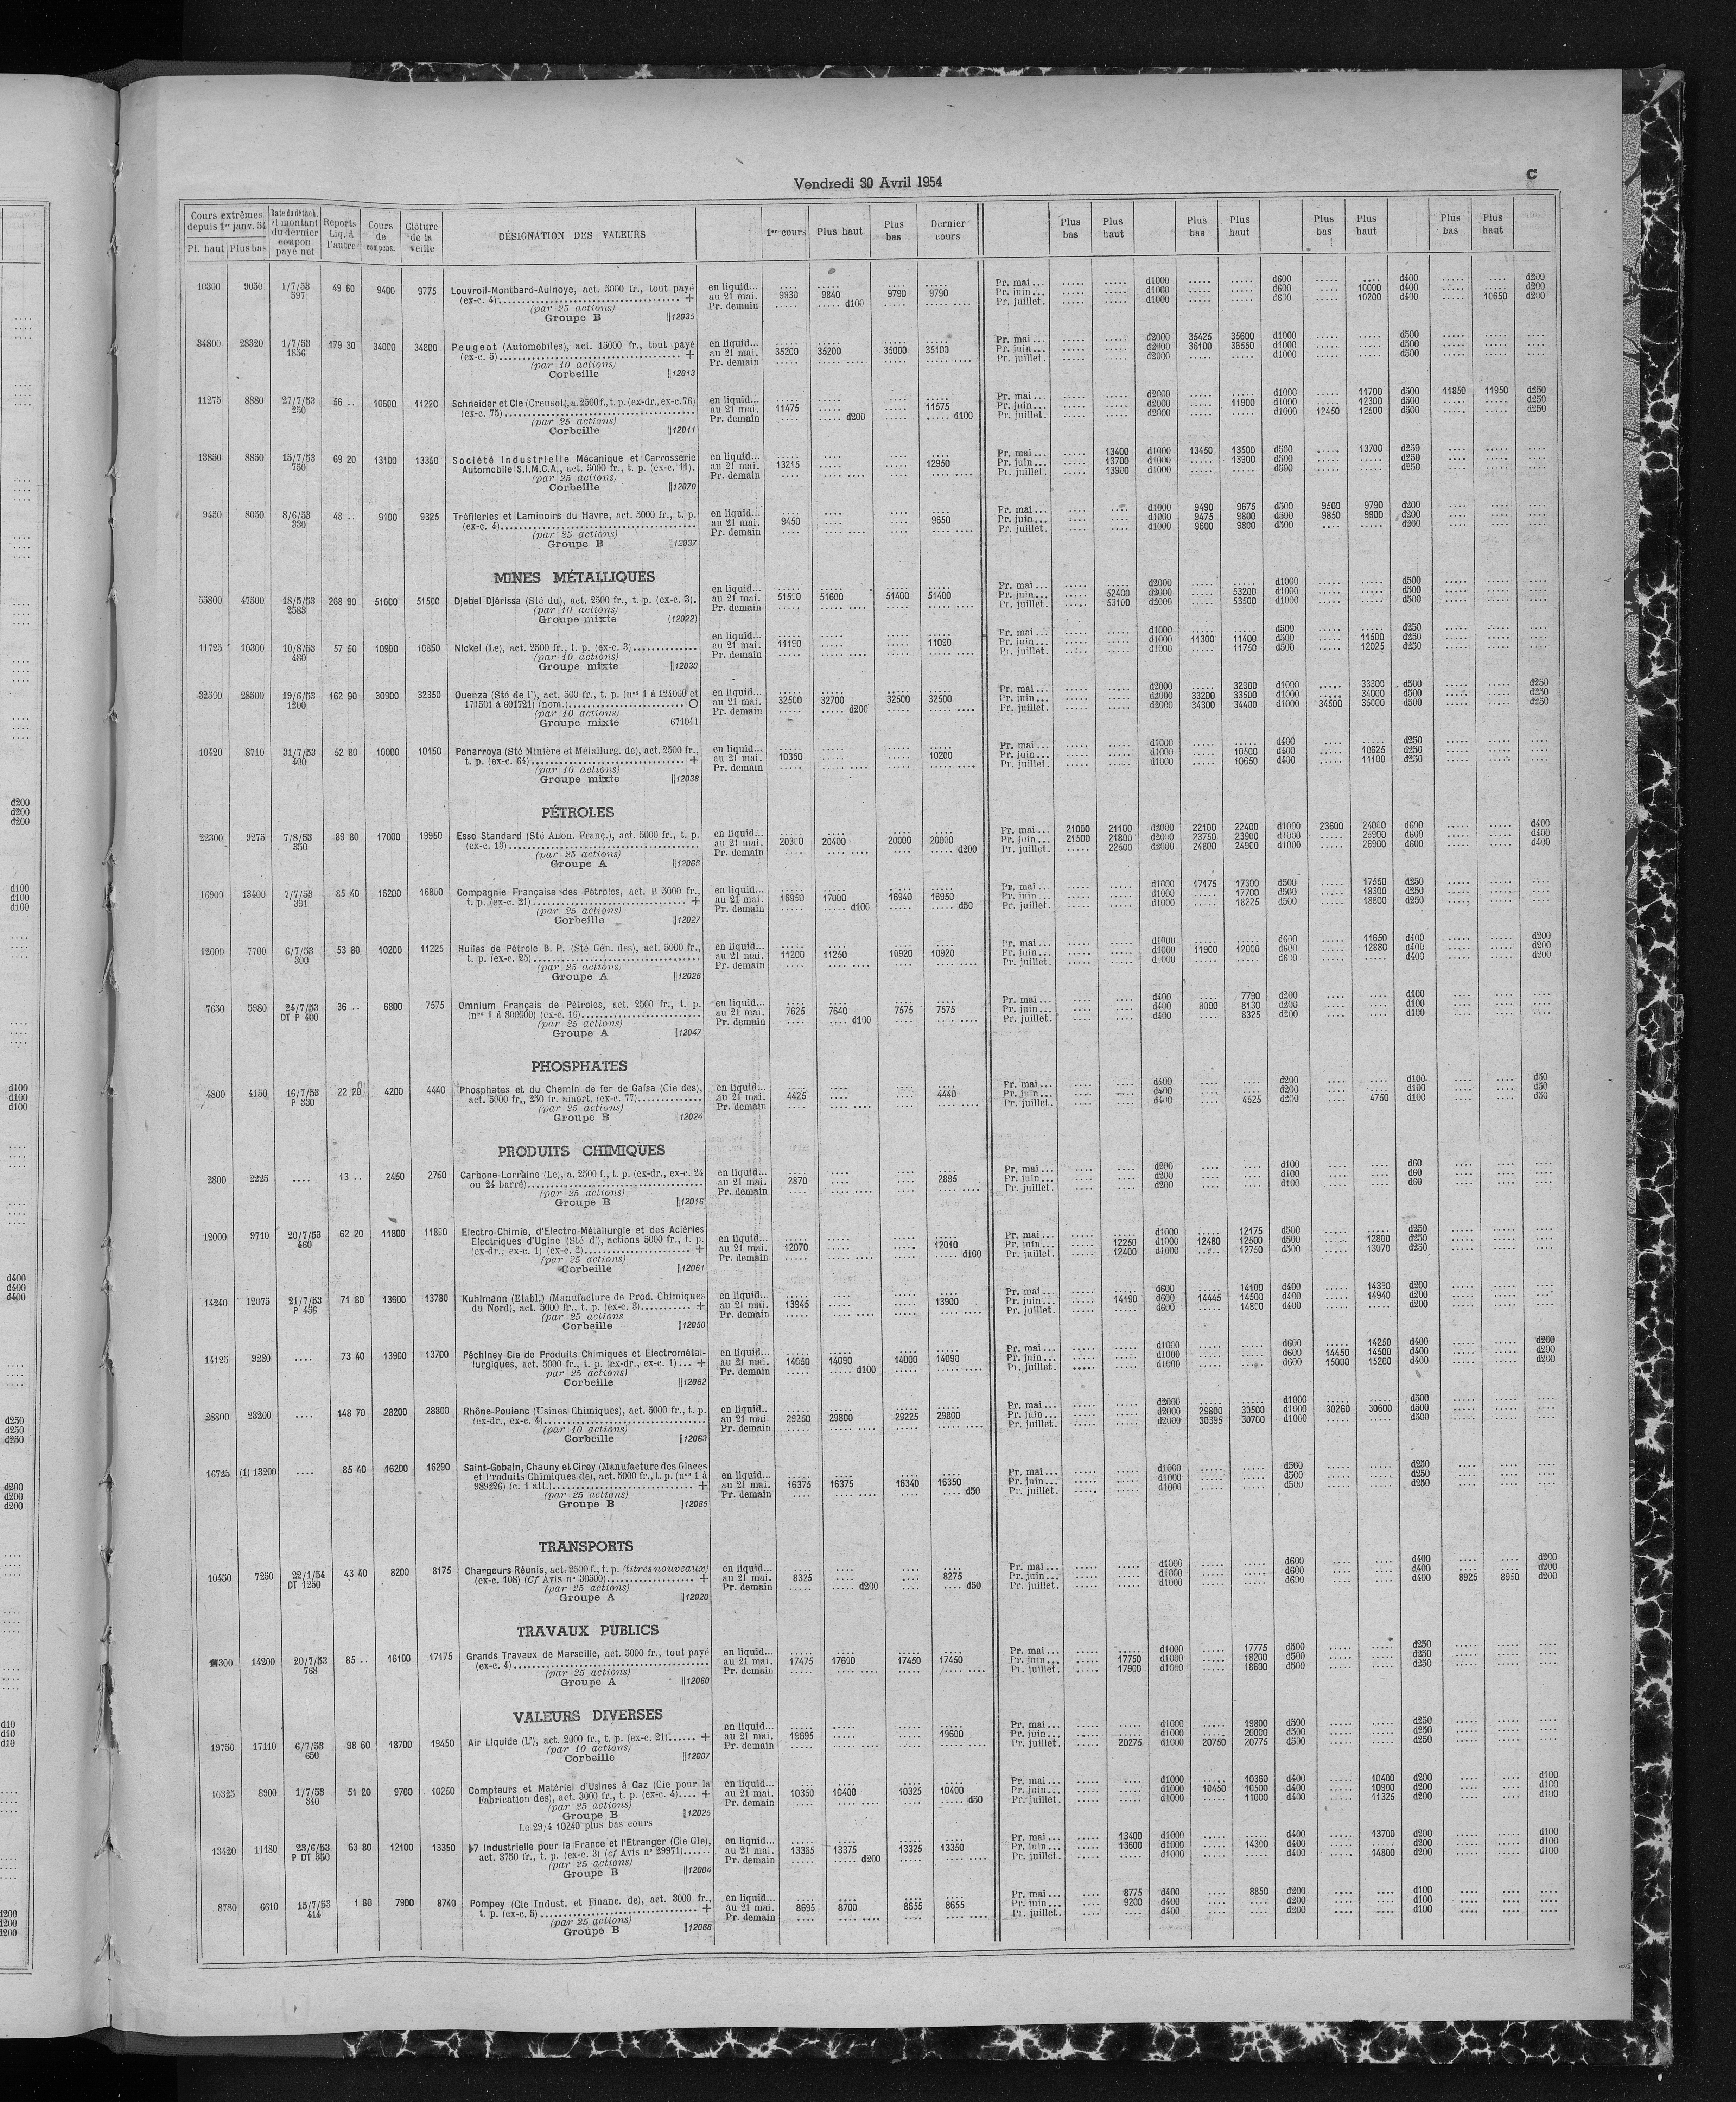 Vendredi 30 Avril 1954
C
Cours extrêmes depuis 1er janv. 54 Date du détach. et montant du dernier coupon payé net Reports Liq. à l'autre Cours de compens. Clôture de la veille DÉSIGNATION DES VALEURS 1er cours Plus haut Plus bas Dernier cours Plus bas Plus haut Plus bas Plus haut Plus bas Plus haut Plus bas Plus haut
Pl. haut Plus bas
10300 9050 1/7/53 597 49 60 9400 9775 Louvroil-Montbard-Aulnoye, act. 5000 fr., tout payé
(ex-c. 4) +
(par 25 actions)
Groupe B 12035
en liquid...
au 21 mai. 9830 9840 9790 9790
Pr. demain d100
Pr. mai... d1000 d600 d400 d200
Pr. juin... d1000 d600 10000 d400 d200
Pr. juillet. d1000 d600 10200 d400 10650 d200
34800 28320 1/7/53 1856 179 30 34000 34800 Peugeot (Automobiles), act. 15000 fr., tout payé
(ex-c. 5) +
(par 10 actions)
Corbeille 12013
en liquid...
au 21 mai. 35200 35200 35000 35100
Pr. demain
Pr. mai... d2000 35425 35600 d1000 d500
Pr. juin... d2000 36100 36550 d1000 d500
Pr. juillet. d2000 d1000 d500
11275 8880 27/7/53 250 56 .. 10600 11220 Schneider et Cie (Creusot), a. 2500 f., t. p. (ex-dr., ex-c. 76)
(ex-c. 75)
(par 25 actions)
Corbeille 12011
en liquid...
au 21 mai. 11475 11575
Pr. demain d200 d100
Pr. mai... d2000 d1000 11700 d500 11850 11950 d250
Pr. juin... d2000 11900 d1000 12300 d500 d250
Pr. juillet. d2000 d1000 12450 12500 d500 d250
13850 8850 15/7/53 750 69 20 13100 13350 Société Industrielle Mécanique et Carrosserie
Automobile S.I.M.C.A., act. 5000 fr., t. p. (ex-c. 11).
(par 25 actions)
Corbeille 12070
en liquid...
au 21 mai. 13215 12950
Pr. demain
Pr. mai... 13400 d1000 13450 13500 d500 13700 d250
Pr. juin... 13700 d1000 13900 d500 d250
Pr. juillet. 13900 d1000 d500 d250
9450 8050 8/6/53 330 48 .. 9100 9325 Tréfileries et Laminoirs du Havre, act. 5000 fr., t. p.
(ex-c. 4)
(par 25 actions)
Groupe B 12037
en liquid...
au 21 mai. 9450 9650
Pr. demain
Pr. mai... d1000 9490 9675 d500 9500 9790 d200
Pr. juin... d1000 9475 9800 d500 9850 9900 d200
Pr. juillet. d1000 9600 9800 d500 d200
MINES MÉTALLIQUES
55800 47500 18/5/53 2583 268 90 51600 51500 Djebel Djérissa (Sté du), act. 2500 fr., t. p. (ex-c. 3).
(par 10 actions)
Groupe mixte (12022)
en liquid...
au 21 mai. 51600 51400 51400
Pr. demain
Pr. mai... d2000 d1000 d500
Pr. juin... 52400 d2000 53200 d1000 d500
Pr. juillet. 53100 d2000 53500 d1000 d500
11725 10300 10/8/53 480 57 50 10900 10850 Nickel (Le), act. 2500 fr., t. p. (ex-c. 3)
(par 10 actions)
Groupe mixte 12030
en liquid...
au 21 mai. 11090
Pr. demain
Pr. mai... d1000 d500 d250
Pr. juin... d1000 11300 11400 d500 11500 d250
Pr. juillet. d1000 11750 d500 12025 d250
32550 28500 19/6/53 1200 162 90 30900 32350 Ouenza (Sté de l'), act. 500 fr., t. p. (nos 1 à 124000 et
171501 à 601721) (nom.) O
(par 10 actions)
Groupe mixte 671041
en liquid...
au 21 mai. 32500 32700 32500 32500
Pr. demain d200
Pr. mai... d2000 32900 d1000 33300 d500 d250
Pr. juin... d2000 33200 33500 d1000 34000 d500 d250
Pr. juillet. d2000 34300 34400 d1000 34500 35000 d500 d250
10420 8710 31/7/53 400 52 80 10000 10150 Penarroya (Sté Minière et Métallurg. de), act. 2500 fr.,
t. p. (ex-c. 64) +
(par 10 actions)
Groupe mixte 12038
en liquid...
au 21 mai. 10350 10200
Pr. demain
Pr. mai... d1000 d400 d250
Pr. juin... d1000 10500 d400 10625 d250
Pr. juillet. d1000 10650 d400 11100 d250
PÉTROLES
22300 9275 7/8/53 350 89 80 17000 19950 Esso Standard (Sté Anon. Franç.), act. 5000 fr., t. p.
(ex-c. 13)
(par 25 actions)
Groupe A 12066
en liquid...
au 21 mai. 20300 20400 20000 20000
Pr. demain d200
Pr. mai... 21000 21100 d2000 22100 22400 d1000 23600 24000 d600 d400
Pr. juin... 21500 21800 d2000 23750 23900 d1000 25900 d600 d400
Pr. juillet. 22500 d2000 24800 24900 d1000 26900 d600 d400
16900 13400 7/7/53 391 85 40 16200 16800 Compagnie Française des Pétroles, act. B 5000 fr.,
t. p. (ex-c. 21) +
(par 25 actions)
Corbeille 12027
en liquid...
au 21 mai. 16950 17000 16940 16950
Pr. demain d100 d50
Pr. mai... d1000 17175 17300 d500 17550 d250
Pr. juin... d1000 17700 d500 18300 d250
Pr. juillet. d1000 18225 d500 18800 d250
12000 7700 6/7/53 300 53 80 10200 11225 Huiles de Pétrole B. P. (Sté Gén. des), act. 5000 fr.,
t. p. (ex-c. 25)
(par 25 actions)
Groupe A 12026
en liquid...
au 21 mai. 11200 11250 10920 10920
Pr. demain
Pr. mai... d1000 d600 11650 d400 d200
Pr. juin... d1000 11900 12000 d600 12880 d400 d200
Pr. juillet. d1000 d600 d400 d200
7650 5980 24/7/53 DT P 400 36 .. 6800 7575 Omnium Français de Pétroles, act. 2500 fr., t. p.
(nos 1 à 800000) (ex-c. 16)
(par 25 actions)
Groupe A 12047
en liquid...
au 21 mai. 7625 7640 7575 7575
Pr. demain d100
Pr. mai... d400 7790 d200 d100
Pr. juin... d400 8000 8130 d200 d100
Pr. juillet. d400 8325 d200 d100
PHOSPHATES
4800 4150 16/7/53 P 330 22 20 4200 4440 Phosphates et du Chemin de fer de Gafsa (Cie des),
act. 5000 fr., 250 fr. amort. (ex-c. 77)
(par 25 actions)
Groupe B 12024
en liquid...
au 21 mai. 4425 4440
Pr. demain
Pr. mai... d400 d200 d100 d50
Pr. juin... d400 d200 d100 d50
Pr. juillet. d400 4525 d200 4750 d100 d50
PRODUITS CHIMIQUES
2800 2225 .... 13 .. 2450 2750 Carbone-Lorraine (Le), a. 2500 f., t. p. (ex-dr., ex-c. 24
ou 24 barré)
(par 25 actions)
Groupe B 12016
en liquid...
au 21 mai. 2870 2895
Pr. demain
Pr. mai... d200 d100 d60
Pr. juin... d200 d100 d60
Pr. juillet. d200 d100 d60
12000 9710 20/7/53 460 62 20 11800 Electro-Chimie, d'Electro-Métallurgie et des Aciéries
Electriques d'Ugine (Sté d'), actions 5000 fr., t. p.
(ex-dr., ex-c. 1) (ex-c. 2) +
(par 25 actions)
Corbeille 12061
en liquid...
au 21 mai. 12070 12010
Pr. demain d100
Pr. mai... d1000 12175 d500 d250
Pr. juin... 12250 d1000 12480 12500 d500 12800 d250
Pr. juillet. 12400 d1000 12750 d500 13070 d250
14240 12075 21/7/53 P 456 71 80 13600 13780 Kuhlmann (Etabl.) (Manufacture de Prod. Chimiques
du Nord), act. 5000 fr., t. p. (ex-c. 3) +
(par 25 actions
Corbeille 12050
en liquid...
au 21 mai. 13945 13900
Pr. demain
Pr. mai... d600 14100 d400 14390 d200
Pr. juin... 14190 d600 14445 14500 d400 14940 d200
Pr. juillet. d600 14800 d400 d200
14125 9280 .... 73 40 13900 13700 Péchiney Cie de Produits Chimiques et Electrométal-
lurgiques, act. 5000 fr., t. p. (ex-dr., ex-c. 1)... +
par 25 actions)
Corbeille 12062
en liquid...
au 21 mai. 14050 14090 14000 14090
Pr. demain d100
Pr. mai... d1000 d600 14250 d400 d200
Pr. juin... d1000 d600 14450 14500 d400 d200
Pr. juillet. d1000 d600 15000 15200 d400 d200
28800 23200 .... 148 70 28200 28800 Rhône-Poulenc (Usines Chimiques), act. 5000 fr., t. p.
(ex-dr., ex-c. 4)
(par 10 actions)
Corbeille 12063
en liquid..
au 21 mai 29250 29800 29225 29800
Pr. demain
Pr. mai... d2000 d1000 d500
Pr. juin... d2000 29800 30500 d1000 30260 30600 d500
Pr. juillet. d2000 30395 30700 d1000 d500
16725 (1) 13200 .... 85 40 16200 16290 Saint-Gobain, Chauny et Cirey (Manufacture des Glaces
et Produits Chimiques de), act. 5000 fr., t. p. (nos 1 à
989226) (c. 1 att.) +
(par 25 actions)
Groupe B 12065
en liquid...
au 21 mai. 16375 16375 16340 16350
Pr. demain d50
Pr. mai... d1000 d500 d250
Pr. juin... d1000 d500 d250
Pr. juillet. d1000 d500 d250
TRANSPORTS
10450 7250 22/1/54 DT 1250 43 40 8200 8175 Chargeurs Réunis, act. 2500 f., t. p. (titres nouveaux)
(ex-c. 108) (Cf Avis n° 30500) +
(par 25 actions)
Groupe A 12020
en liquid...
au 21 mai. 8325 8275
Pr. demain d200 d50
Pr. mai... d1000 d600 d400 d200
Pr. juin... d1000 d600 d400 d200
Pr. juillet. d1000 d600 d400 8925 8950 d200
TRAVAUX PUBLICS
14200 20/7/53 768 85 .. 16100 17175 Grands Travaux de Marseille, act. 5000 fr., tout payé
(ex-c. 4)
(par 25 actions)
Groupe A 12060
en liquid...
au 21 mai. 17475 17600 17450 17450
Pr. demain
Pr. mai... d1000 17775 d500 d250
Pr. juin... 17750 d1000 18200 d500 d250
Pr. juillet. 17900 d1000 18600 d500 d250
VALEURS DIVERSES
19750 17110 6/7/53 650 98 60 18700 19450 Air Liquide (L'), act. 2000 fr., t. p. (ex-c. 21)...... +
(par 10 actions)
Corbeille 12007
en liquid...
au 21 mai. 19695 19600
Pr. demain
Pr. mai... d1000 19800 d500 d250
Pr. juin... d1000 20000 d500 d250
Pr. juillet. 20275 d1000 20750 20775 d500 d250
10325 8900 1/7/53 340 51 20 9700 10250 Compteurs et Matériel d'Usines à Gaz (Cie pour la
Fabrication des), act. 3000 fr., t. p. (ex-c. 4).... +
(par 25 actions)
Groupe B 12025
Le 29/4 10240 plus bas cours
en liquid...
au 21 mai. 10350 10400 10325 10400
Pr. demain d50
Pr. mai... d1000 10360 d400 10400 d200 d100
Pr. juin... d1000 10450 10500 d400 10900 d200 d100
Pr. juillet. d1000 11000 d400 11325 d200 d100
13420 11180 23/6/53 P DT 350 63 80 12100 13350 Industrielle pour la France et l'Etranger (Cie Gle),
act. 3750 fr., t. p. (ex-c. 3) (cf Avis n° 29971)
(par 25 actions)
Groupe B 12004
en liquid...
au 21 mai. 13365 13375 13325 13350
Pr. demain d200
Pr. mai... 13400 d1000 d400 13700 d200 d100
Pr. juin... 13600 d1000 14300 d400 d200 d100
Pr. juillet. d1000 d400 14800 d200 d100
8780 6610 15/7/53 414 1 80 7900 8740 Pompey (Cie Indust. et Financ. de), act. 3000 fr.,
t. p. (ex-c. 5) +
(par 25 actions)
Groupe B 12068
en liquid...
au 21 mai. 8695 8700 8655 8655
Pr. demain
Pr. mai... 8775 d400 8850 d200 d100
Pr. juin... 9200 d400 d200 d100
Pr. juillet. d400 d200 d100